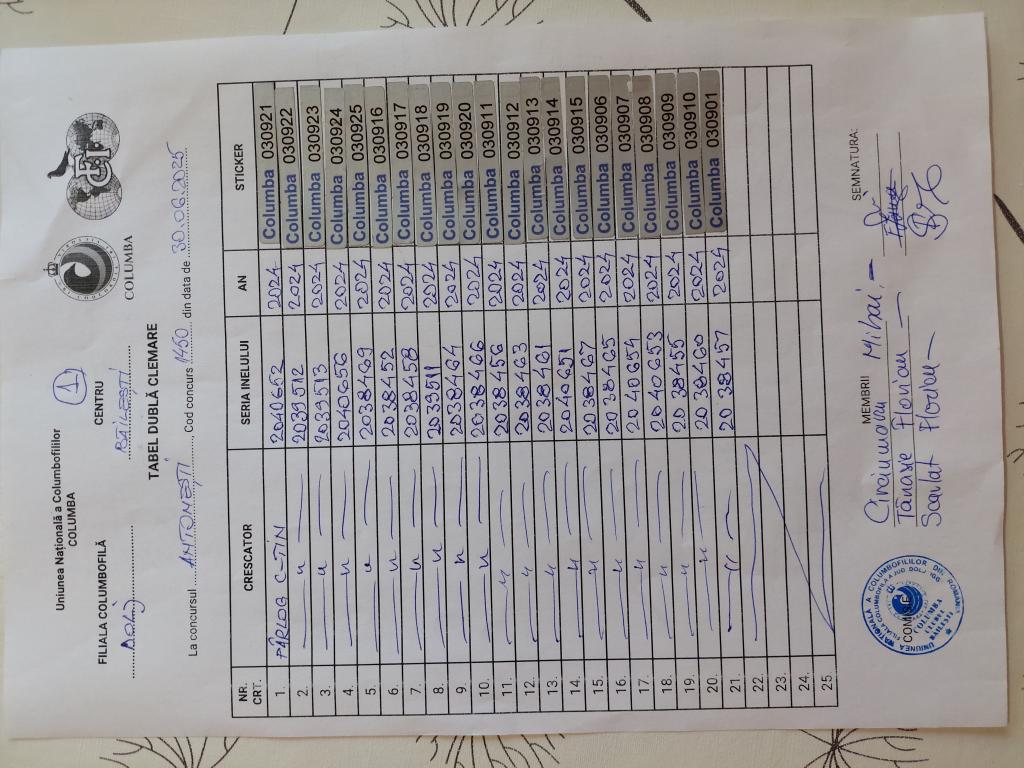 Uniunea Națională a Columbofililor
COLUMBA
COLUMBA
FILIALA COLUMBOFILĂ CENTRU 1
Dolj BĂILEȘTI
TABEL DUBLĂ CLEMARE
La concursul ANTONEȘTI, Cod concurs 1450 din data de 30.06.2025
NR. CRT. CRESCATOR SERIA INELULUI AN STICKER
1. PÎRLOG C-TIN 2040652 2024 Columba 030921
2. — u — 2039512 2024 Columba 030922
3. — u — 2039513 2024 Columba 030923
4. — u — 2040656 2024 Columba 030924
5. — u — 2038469 2024 Columba 030925
6. — u — 2038452 2024 Columba 030916
7. — u — 2038458 2024 Columba 030917
8. — u — 2039511 2024 Columba 030918
9. — u — 2038464 2024 Columba 030919
10. — u — 2038466 2024 Columba 030920
11. — u — 2038456 2024 Columba 030911
12. — u — 2038463 2024 Columba 030912
13. — u — 2038461 2024 Columba 030913
14. — u — 2040651 2024 Columba 030914
15. — u — 2038467 2024 Columba 030915
16. — u — 2038465 2024 Columba 030906
17. — u — 2040654 2024 Columba 030907
18. — u — 2040653 2024 Columba 030908
19. — u — 2038455 2024 Columba 030909
20. — u — 2038460 2024 Columba 030910
21. — u — 2038457 2024 Columba 030901
22.
23.
24.
25.
MEMBRII SEMNATURA:
Mihai
Tănase Florian
Scarlat Florian